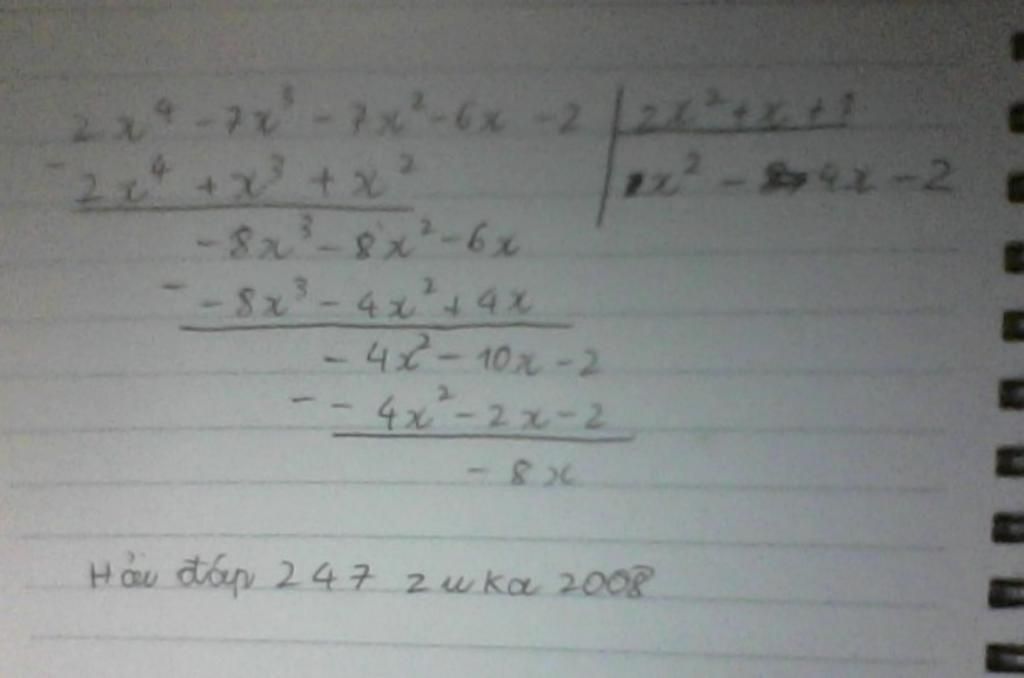 2x⁴ - 7x³ - 7x² - 6x - 2 | 2x² + x + 1
- 2x⁴ + x³ + x² | x² - 4x - 2
- 8x³ - 8x² - 6x
- - 8x³ - 4x² + 4x
- 4x² - 10x - 2
- - 4x² - 2x - 2
- 8x
Hỏi đáp 247 zuka 2008